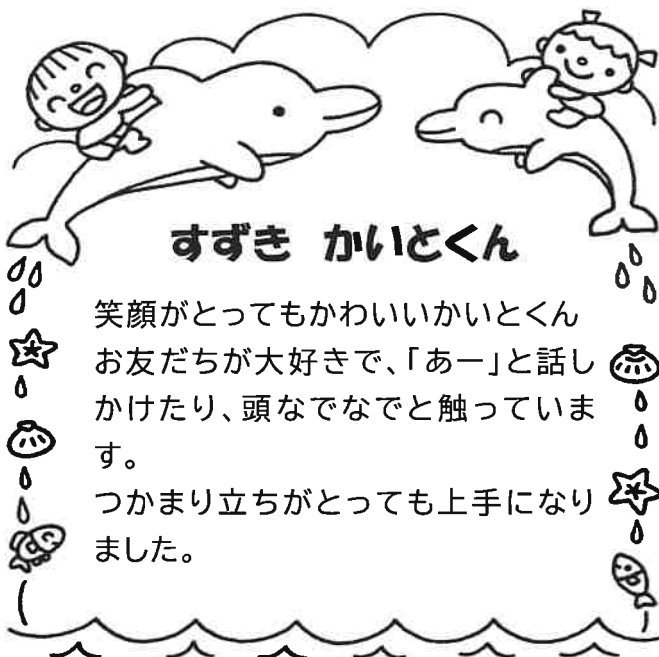 すずき かいとくん
笑顔がとってもかわいいかいとくん
お友だちが大好きで、「あー」と話し
かけたり、頭なでなでと触っていま
す。
つかまり立ちがとっても上手になり
ました。